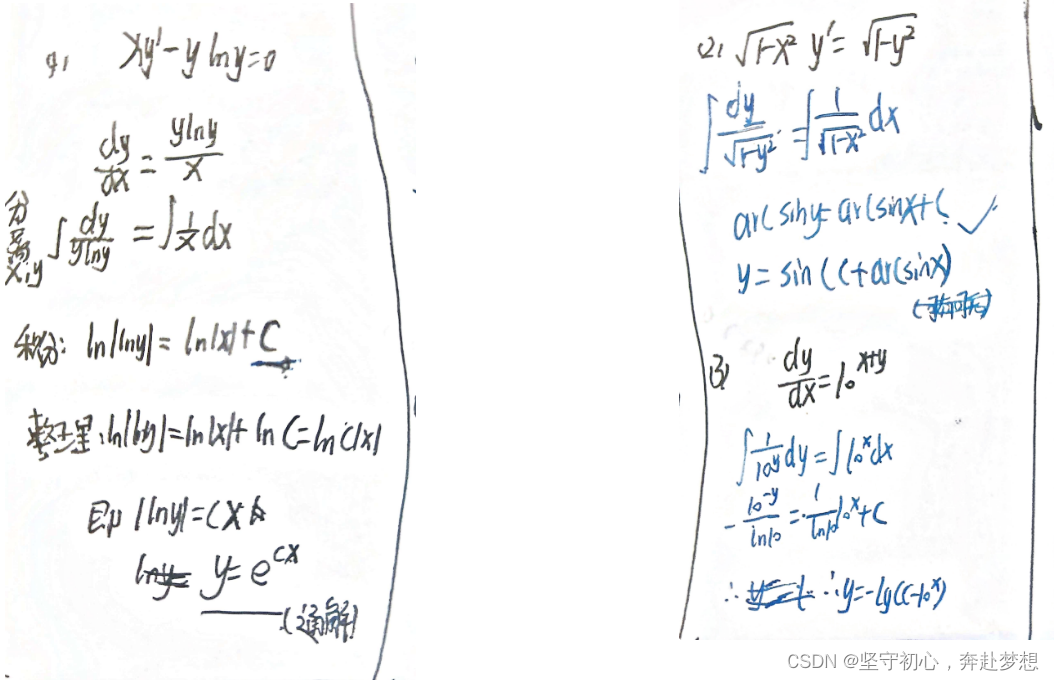 (1) xy' - y ln y = 0
dy/dx = y ln y / x
分离x,y ∫ dy/(y ln y) = ∫ 1/x dx
积分: ln|lny| = ln|x| + C
整理: ln|lny| = ln|x| + ln C = ln C|x|
即 |lny| = Cx
y = e^{cx}
(通解)
(2) √(1-x²) y' = √(1-y²)
∫ dy/√(1-y²) = ∫ 1/√(1-x²) dx
arcsiny = arcsinx + C ✓
y = sin(C + arcsinx)
(3) dy/dx = 10^{x+y}
∫ 1/10^y dy = ∫ 10^x dx
- 10^{-y}/ln10 = 1/ln10 10^x + C
∴ y = -lg(C - 10^x)
CSDN @坚守初心，奔赴梦想